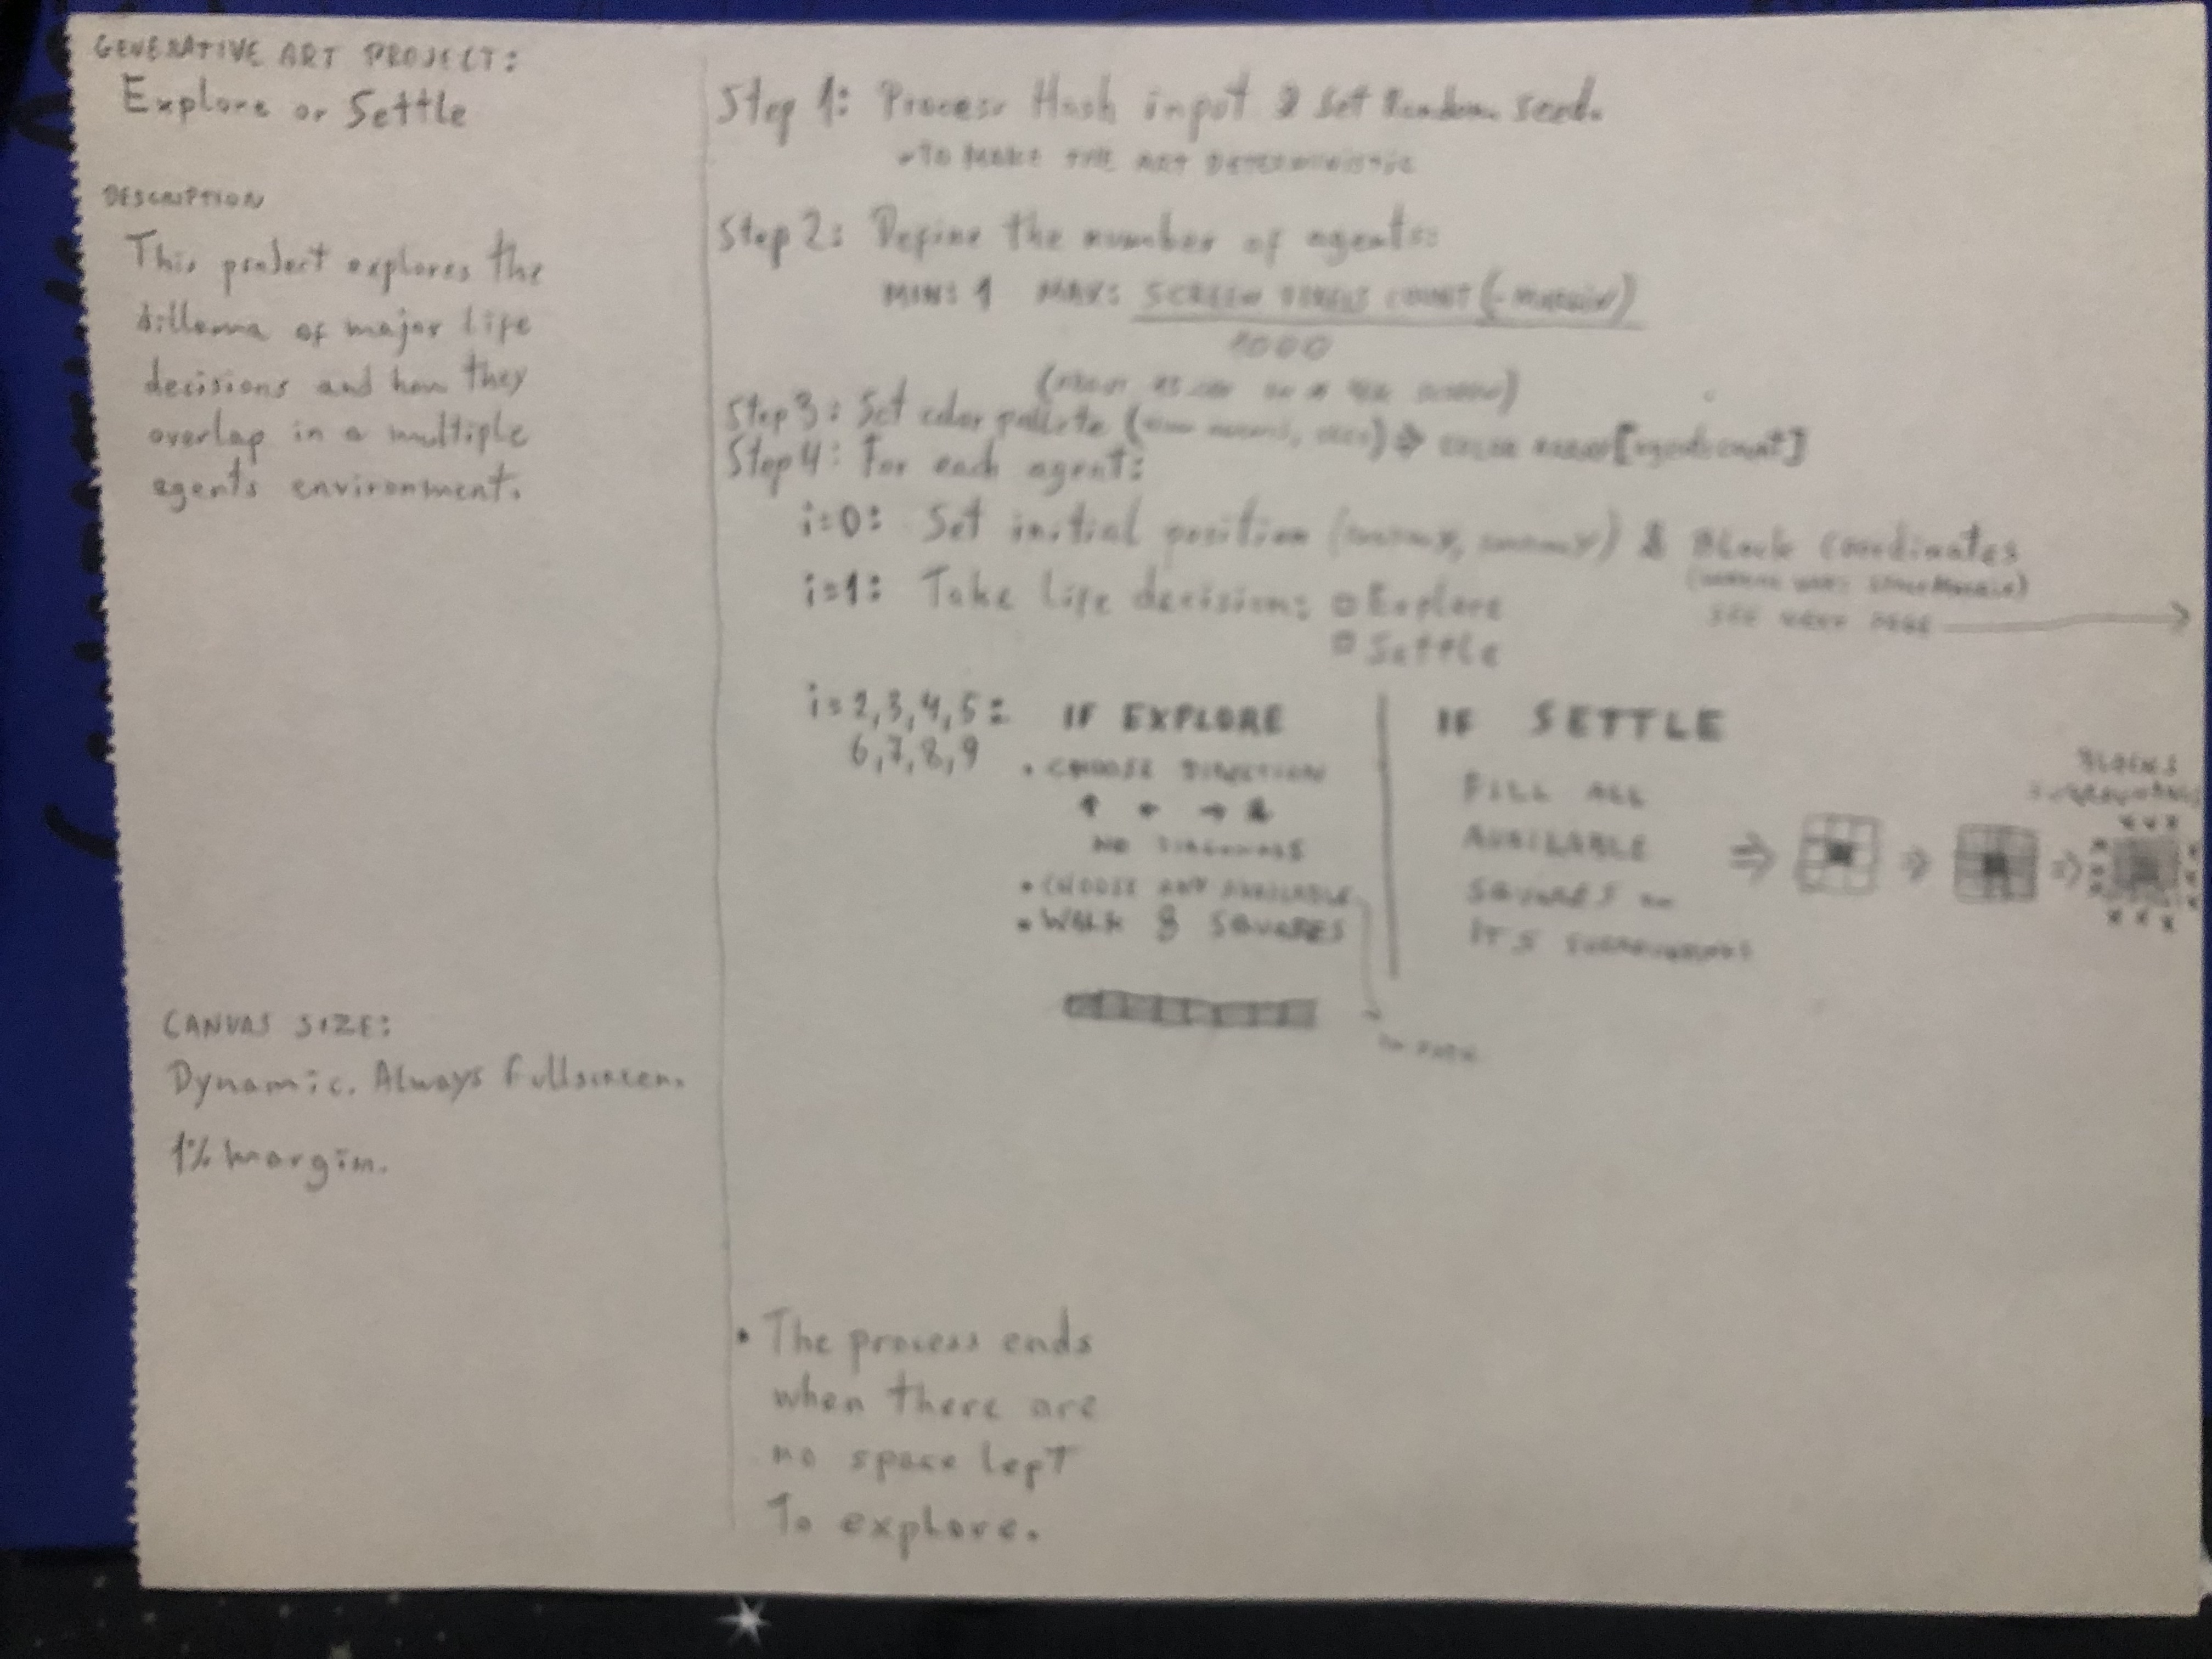 GENERATIVE ART PROJECT:
Explore or Settle
DESCRIPTION
This project explores the
dillema of major life
decisions and how they
overlap in a multiple
agents environment.
CANVAS SIZE:
Dynamic. Always fullscreen.
1% margin.
Step 1: Process Hash input & Set Random seed.
→ TO MAKE THE ART DETERMINISTIC
Step 2: Define the number of agents:
MIN: 1 MAX: SCREEN PIXELS COUNT (- MARGIN)
Step 3: Set color pallete
COLOR ARRAY [agents count]
Step 4: For each agent:
i=0: Set initial position & Block Coordinates
SEE NEXT PAGE
i=1: Take life decision: Explore
Settle
i=2,3,4,5:
6,7,8,9
IF EXPLORE
• CHOOSE DIRECTION
↑ ← → ↓
NO DIAGONALS
• CHOOSE ANY AVAILABLE
• WALK 8 SQUARES
IF SETTLE
FILL ALL
AVAILABLE
SQUARES
ITS SURROUNDINGS
BLOCKS
• The process ends
when there are
no space left
To explore.